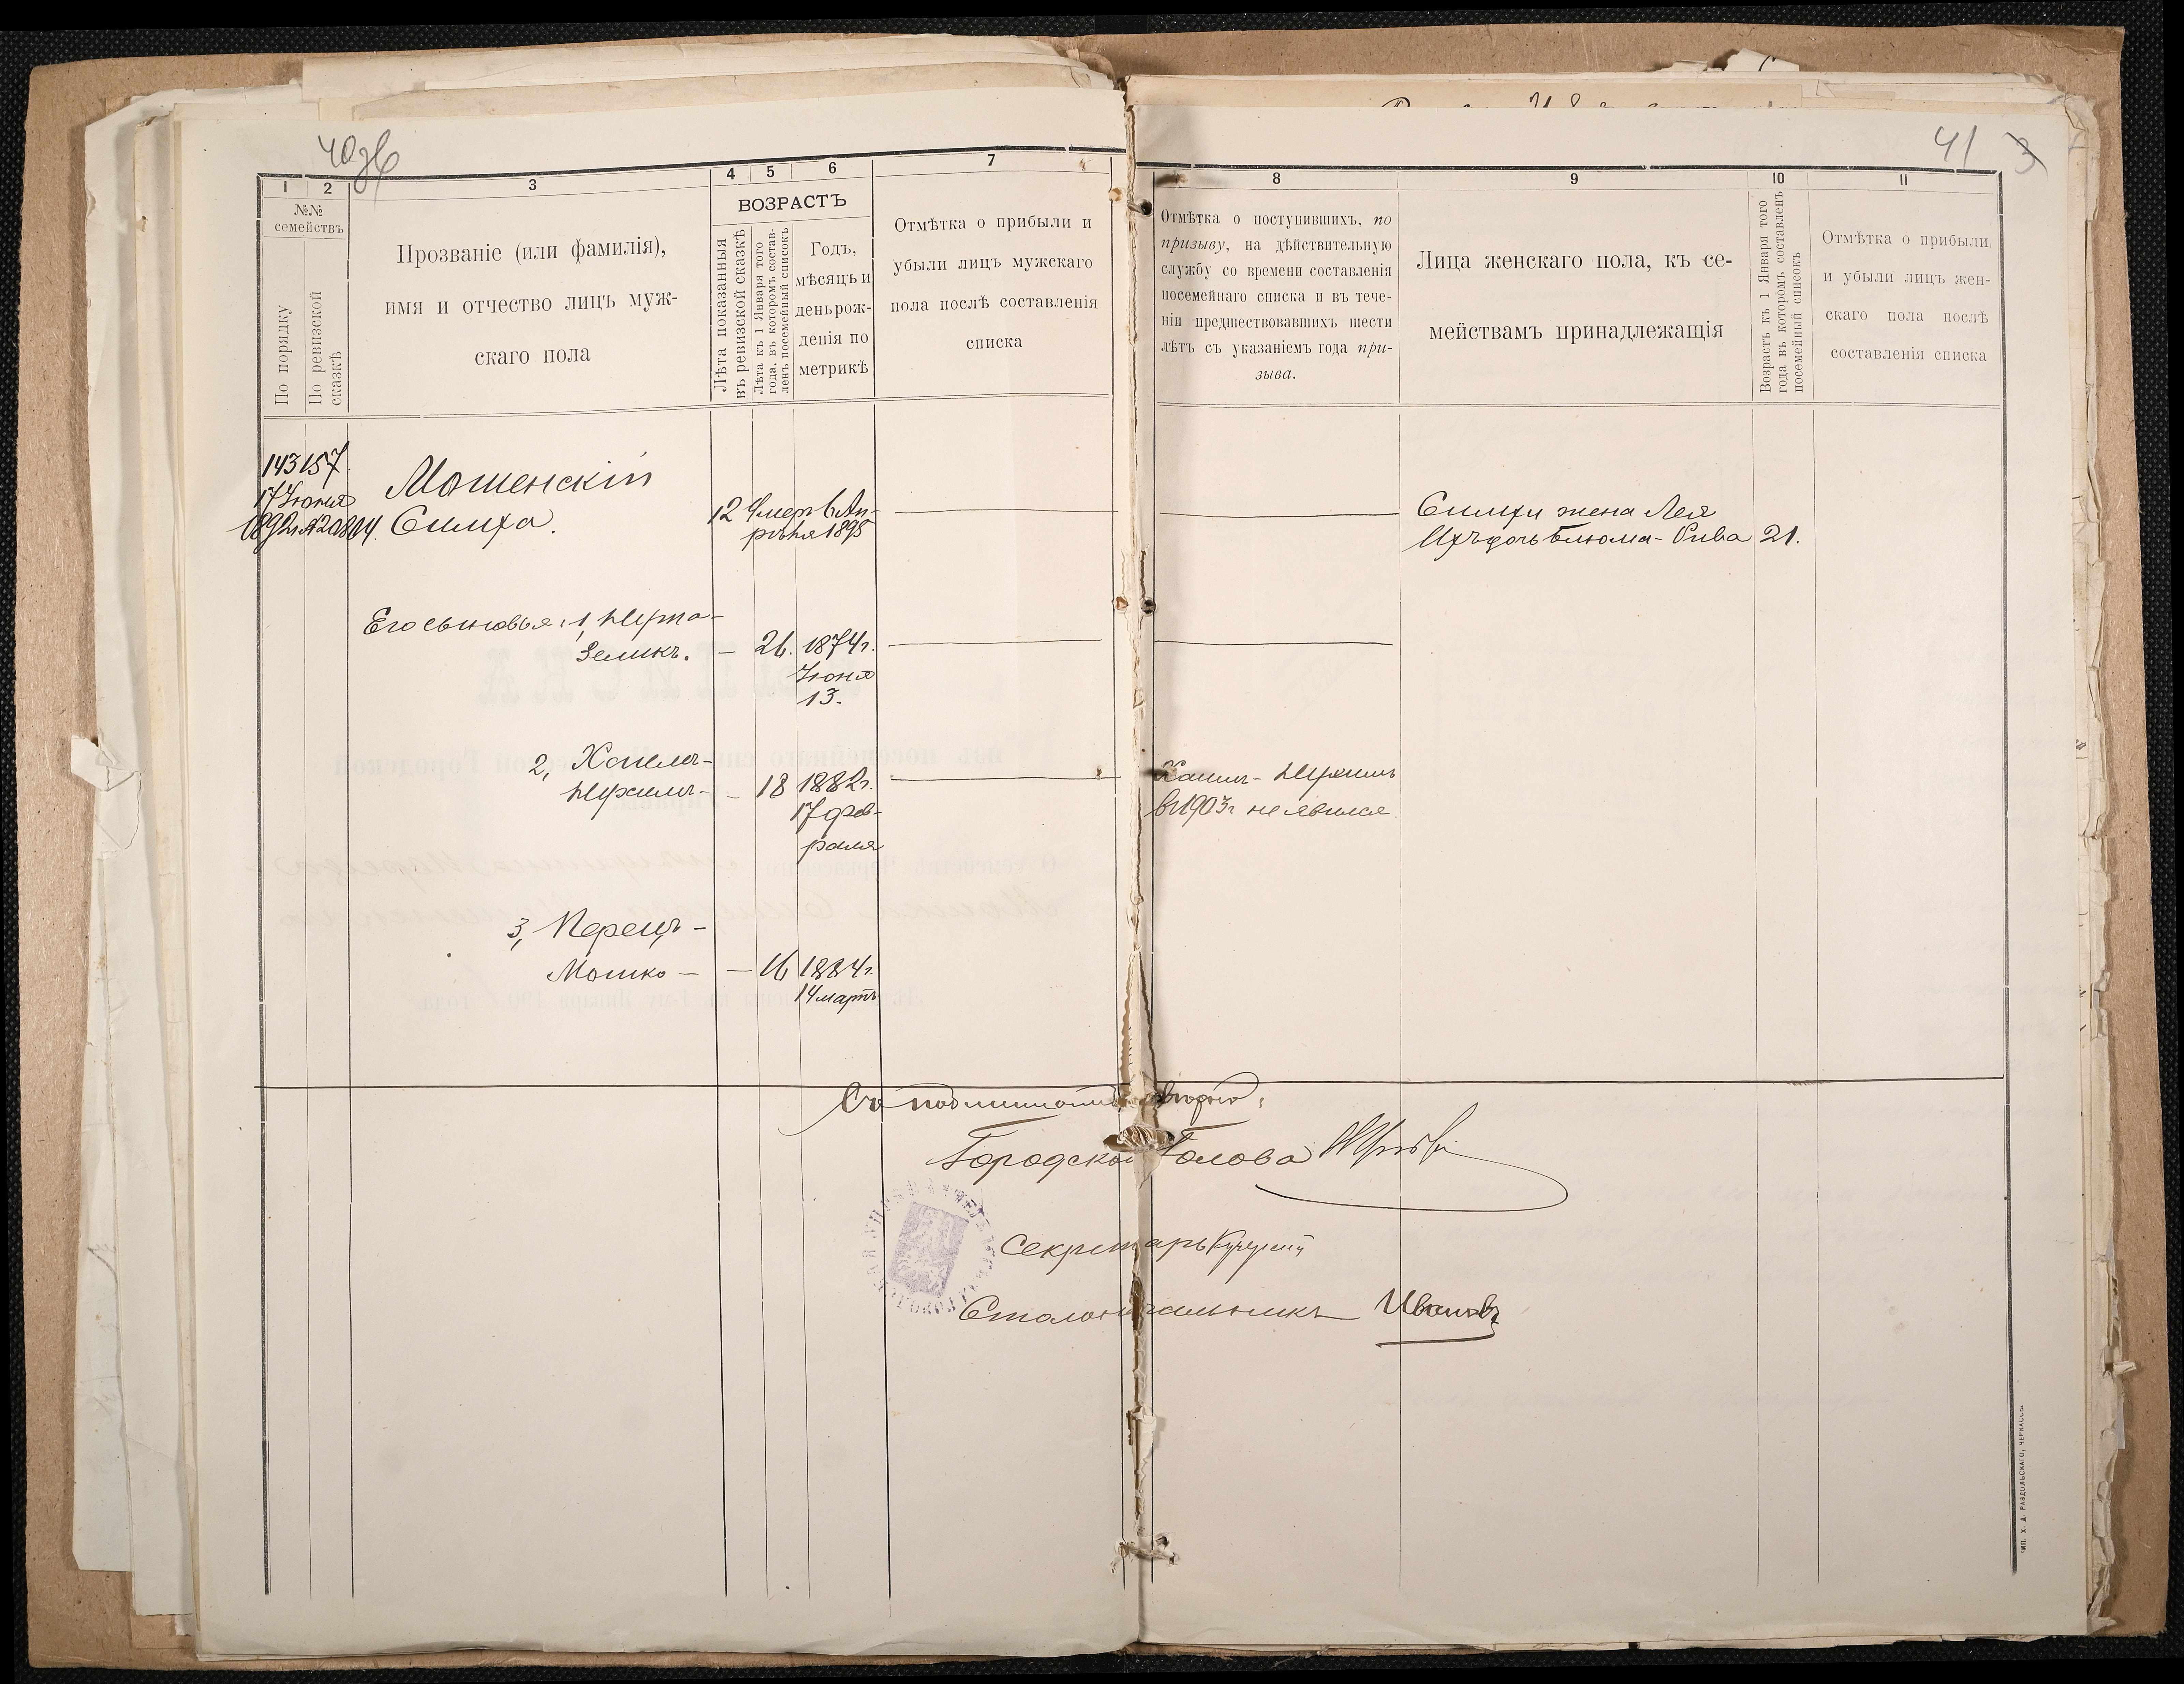 40об
41
3
1
2
3
4
5
6
7
8
9
10
11
№№
семействъ
По порядку
По ревизской
сказкѣ
Прозваніе (или фамилія),
имя и отчество лицъ муж-
скаго пола
ВОЗРАСТЪ
Лѣта показанныя
въ ревизской сказкѣ
Лѣта къ 1 Января того
года, въ которомъ состав-
ленъ посемейный списокъ
Годъ,
мѣсяцъ и
день рож-
денія по
метрикѣ
Отмѣтка о прибыли и
убыли лицъ мужскаго
пола послѣ составленія
списка
Отмѣтка о поступившихъ, по
призыву, на дѣйствительную
службу со времени составленія
посемейнаго списка и въ тече-
ніи предшествовавшихъ шести
лѣтъ съ указаніемъ года при-
зыва.
Лица женскаго пола, къ се-
мействамъ принадлежащія
Возрастъ къ 1 Января того
года въ которомъ составленъ
посемейный списокъ
Отмѣтка о прибыли
и убыли лицъ жен-
скаго пола послѣ
составленія списка
143 157.
17 Іюня
1892г.
Мошенскій
Симха.
12 Умеръ 6 Ап-
рѣля 1895
Симхи жена Лея
Ихъ дочь Блюма-Рива 21.
Его сыновья: 1,
Зеликъ. — 26. 1874г.
Іюня
13.
2, Хаимъ-
Іерхимъ- — 18 1882г.
17 фев-
раля
Хаимъ-Іерхимъ
в 1903г не явился
3, Перецъ-
Мошко — — 16 1884г.
14 марта
Съ подлиннымъ вѣрно:
Городской Голова
Секретарь
Столоначальникъ Ивановъ
ТИП. Х. Д. РАЗДОЛЬСКАГО, ЧЕРКАССЫ.